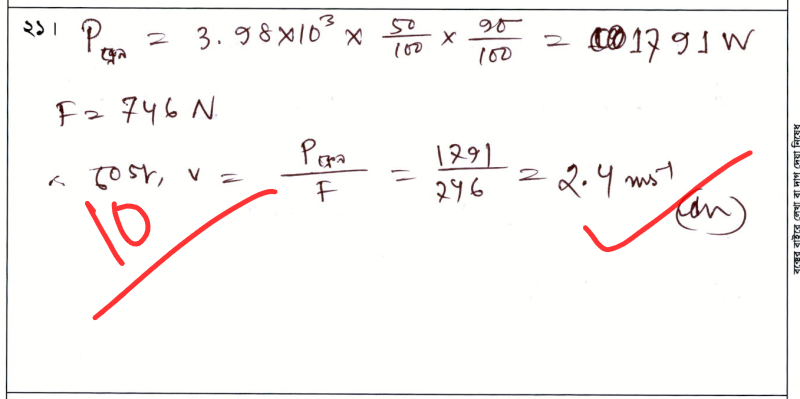 ২১। P_ক্রেন = 3.98×10³ × 50/100 × 90/100 = 1791 W
F = 746 N
∴ বেগ, v = P_ক্রেন/F = 1791/746 = 2.4 ms⁻¹
(Ans)
10
বক্সের বাইরে লেখা বা দাগ দেয়া নিষেধ